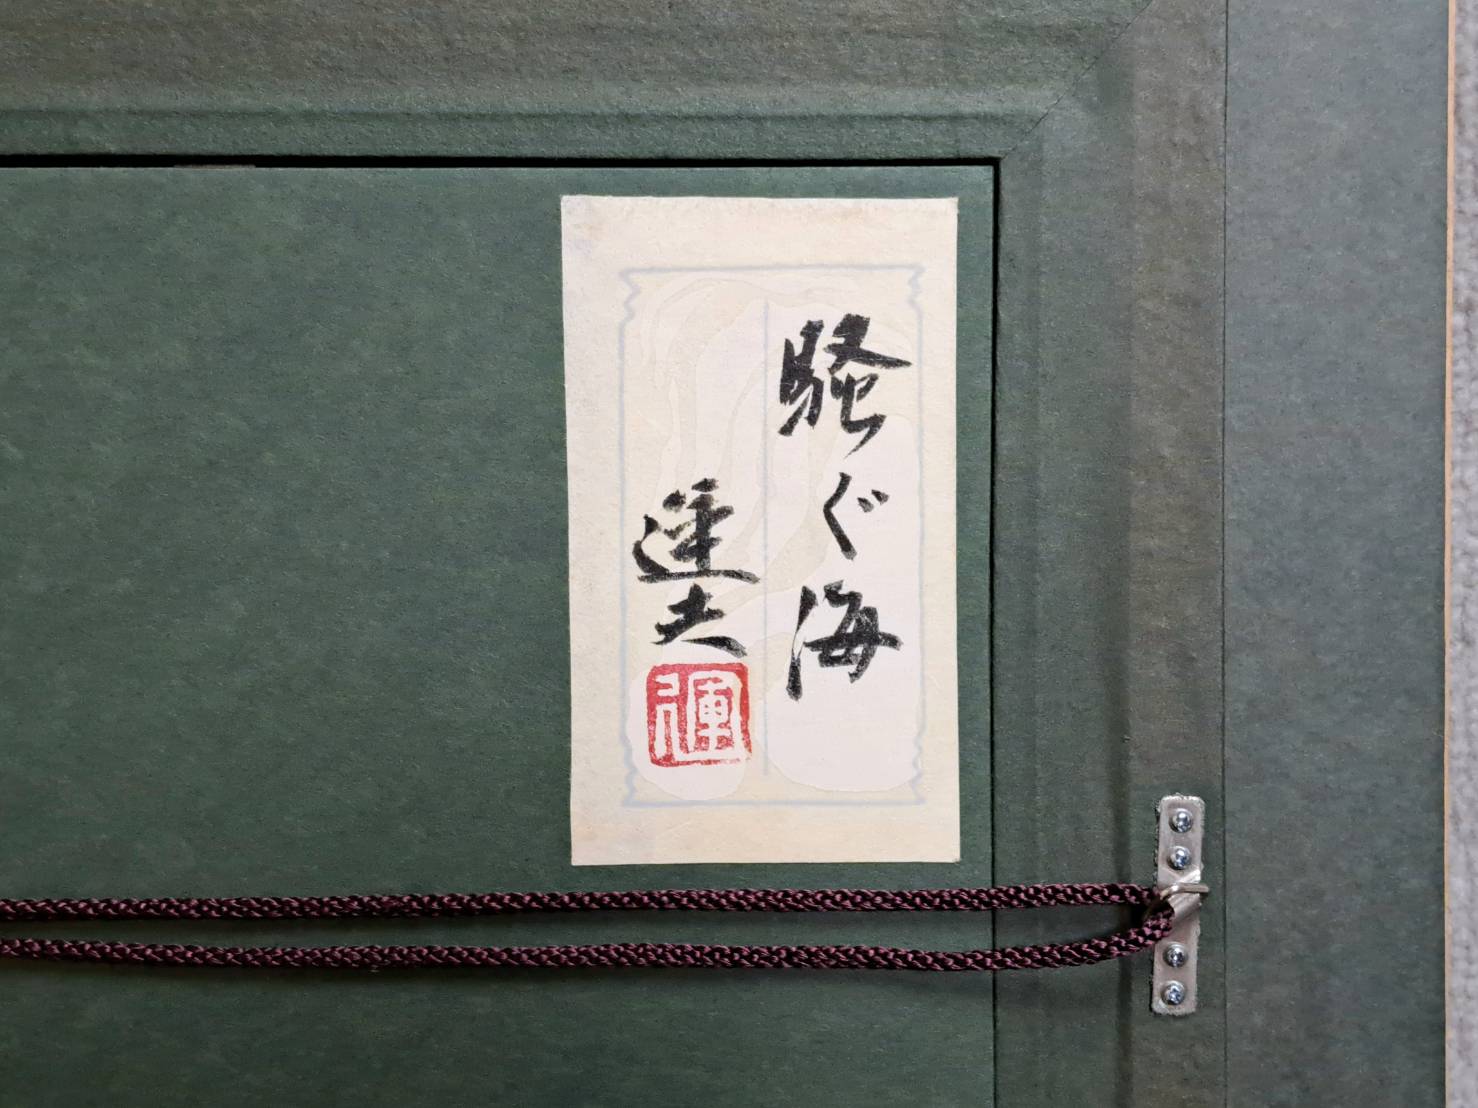 騒ぐ海
運夫
運